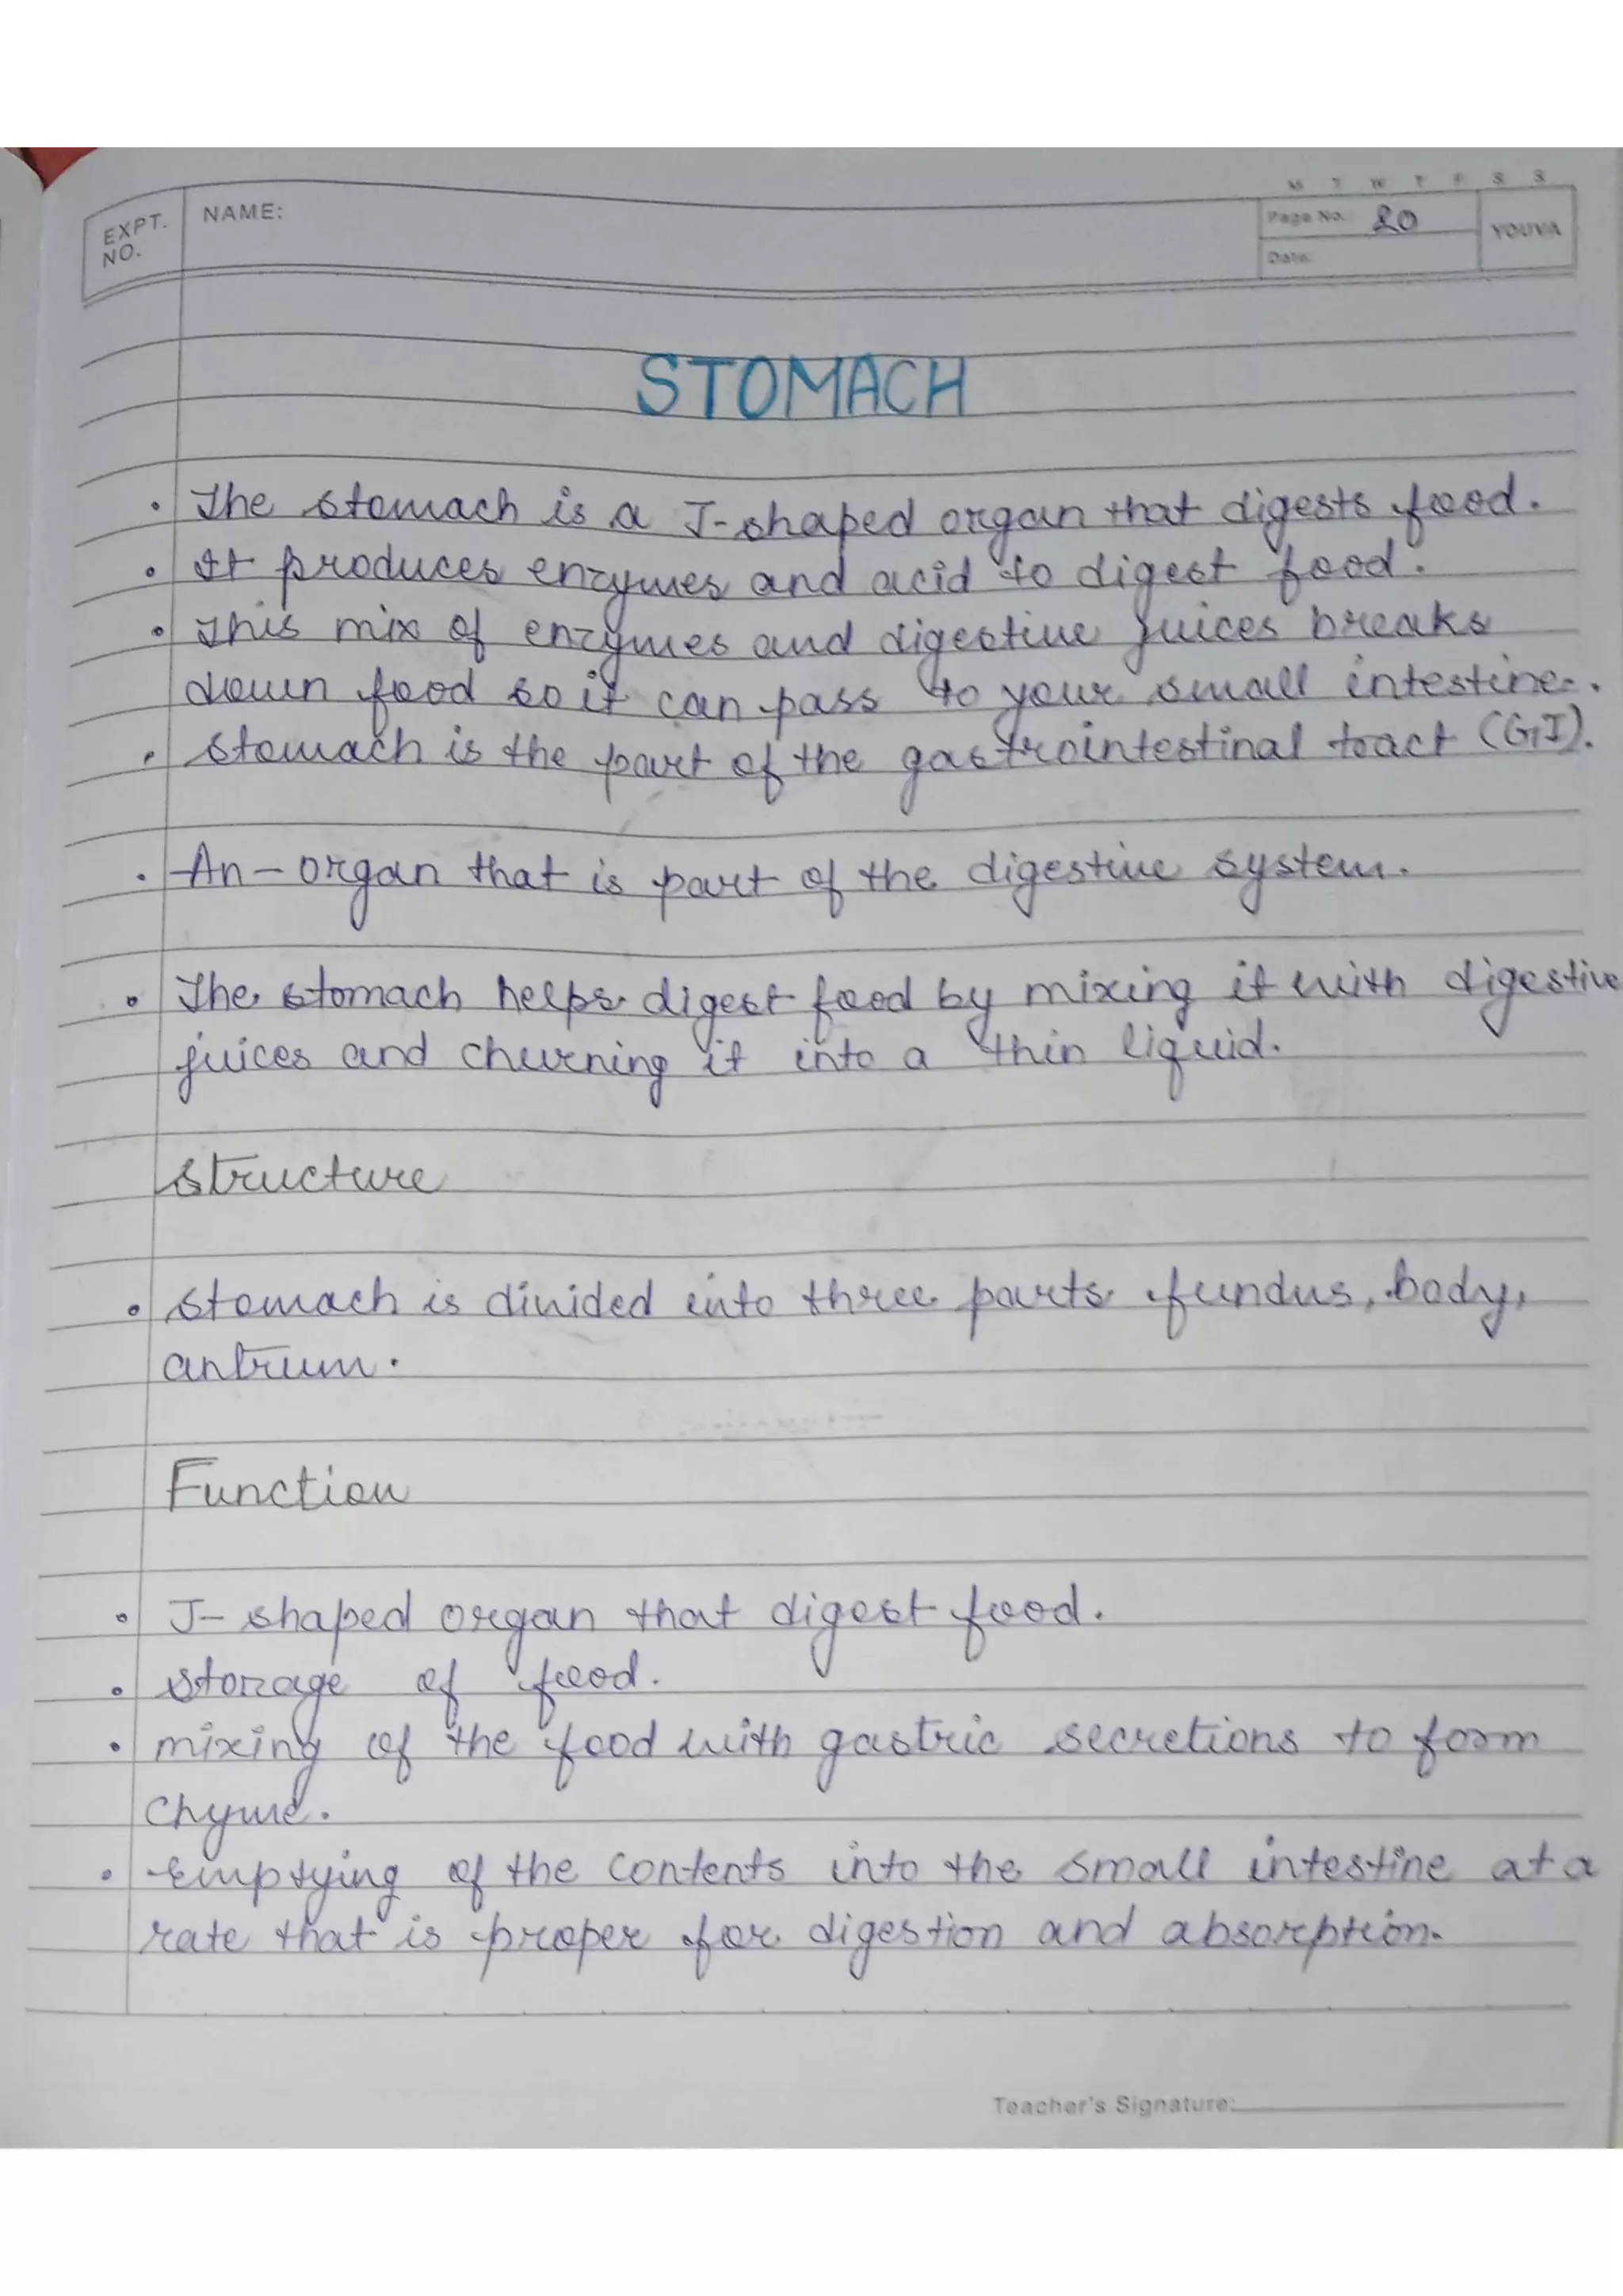 M T W T F S S
EXPT. NO.
NAME:
Page No. 20
YOUVA
Date:
STOMACH
• The stomach is a J-shaped organ that digests food.
• It produces enzymes and acid to digest food.
• This mix of enzymes and digestive juices breaks
down food so it can pass to your small intestine.
• Stomach is the part of the gastrointestinal tract (GI).
• An-organ that is part of the digestive system.
• The stomach helps digest food by mixing it with digestive
juices and churning it into a thin liquid.
Structure
• Stomach is divided into three parts fundus, body,
antrum.
Function
• J-shaped organ that digest food.
• Storage of food.
• mixing of the food with gastric secretions to form
chyme.
• Emptying of the contents into the small intestine at a
rate that is proper for digestion and absorption.
Teacher's Signature: